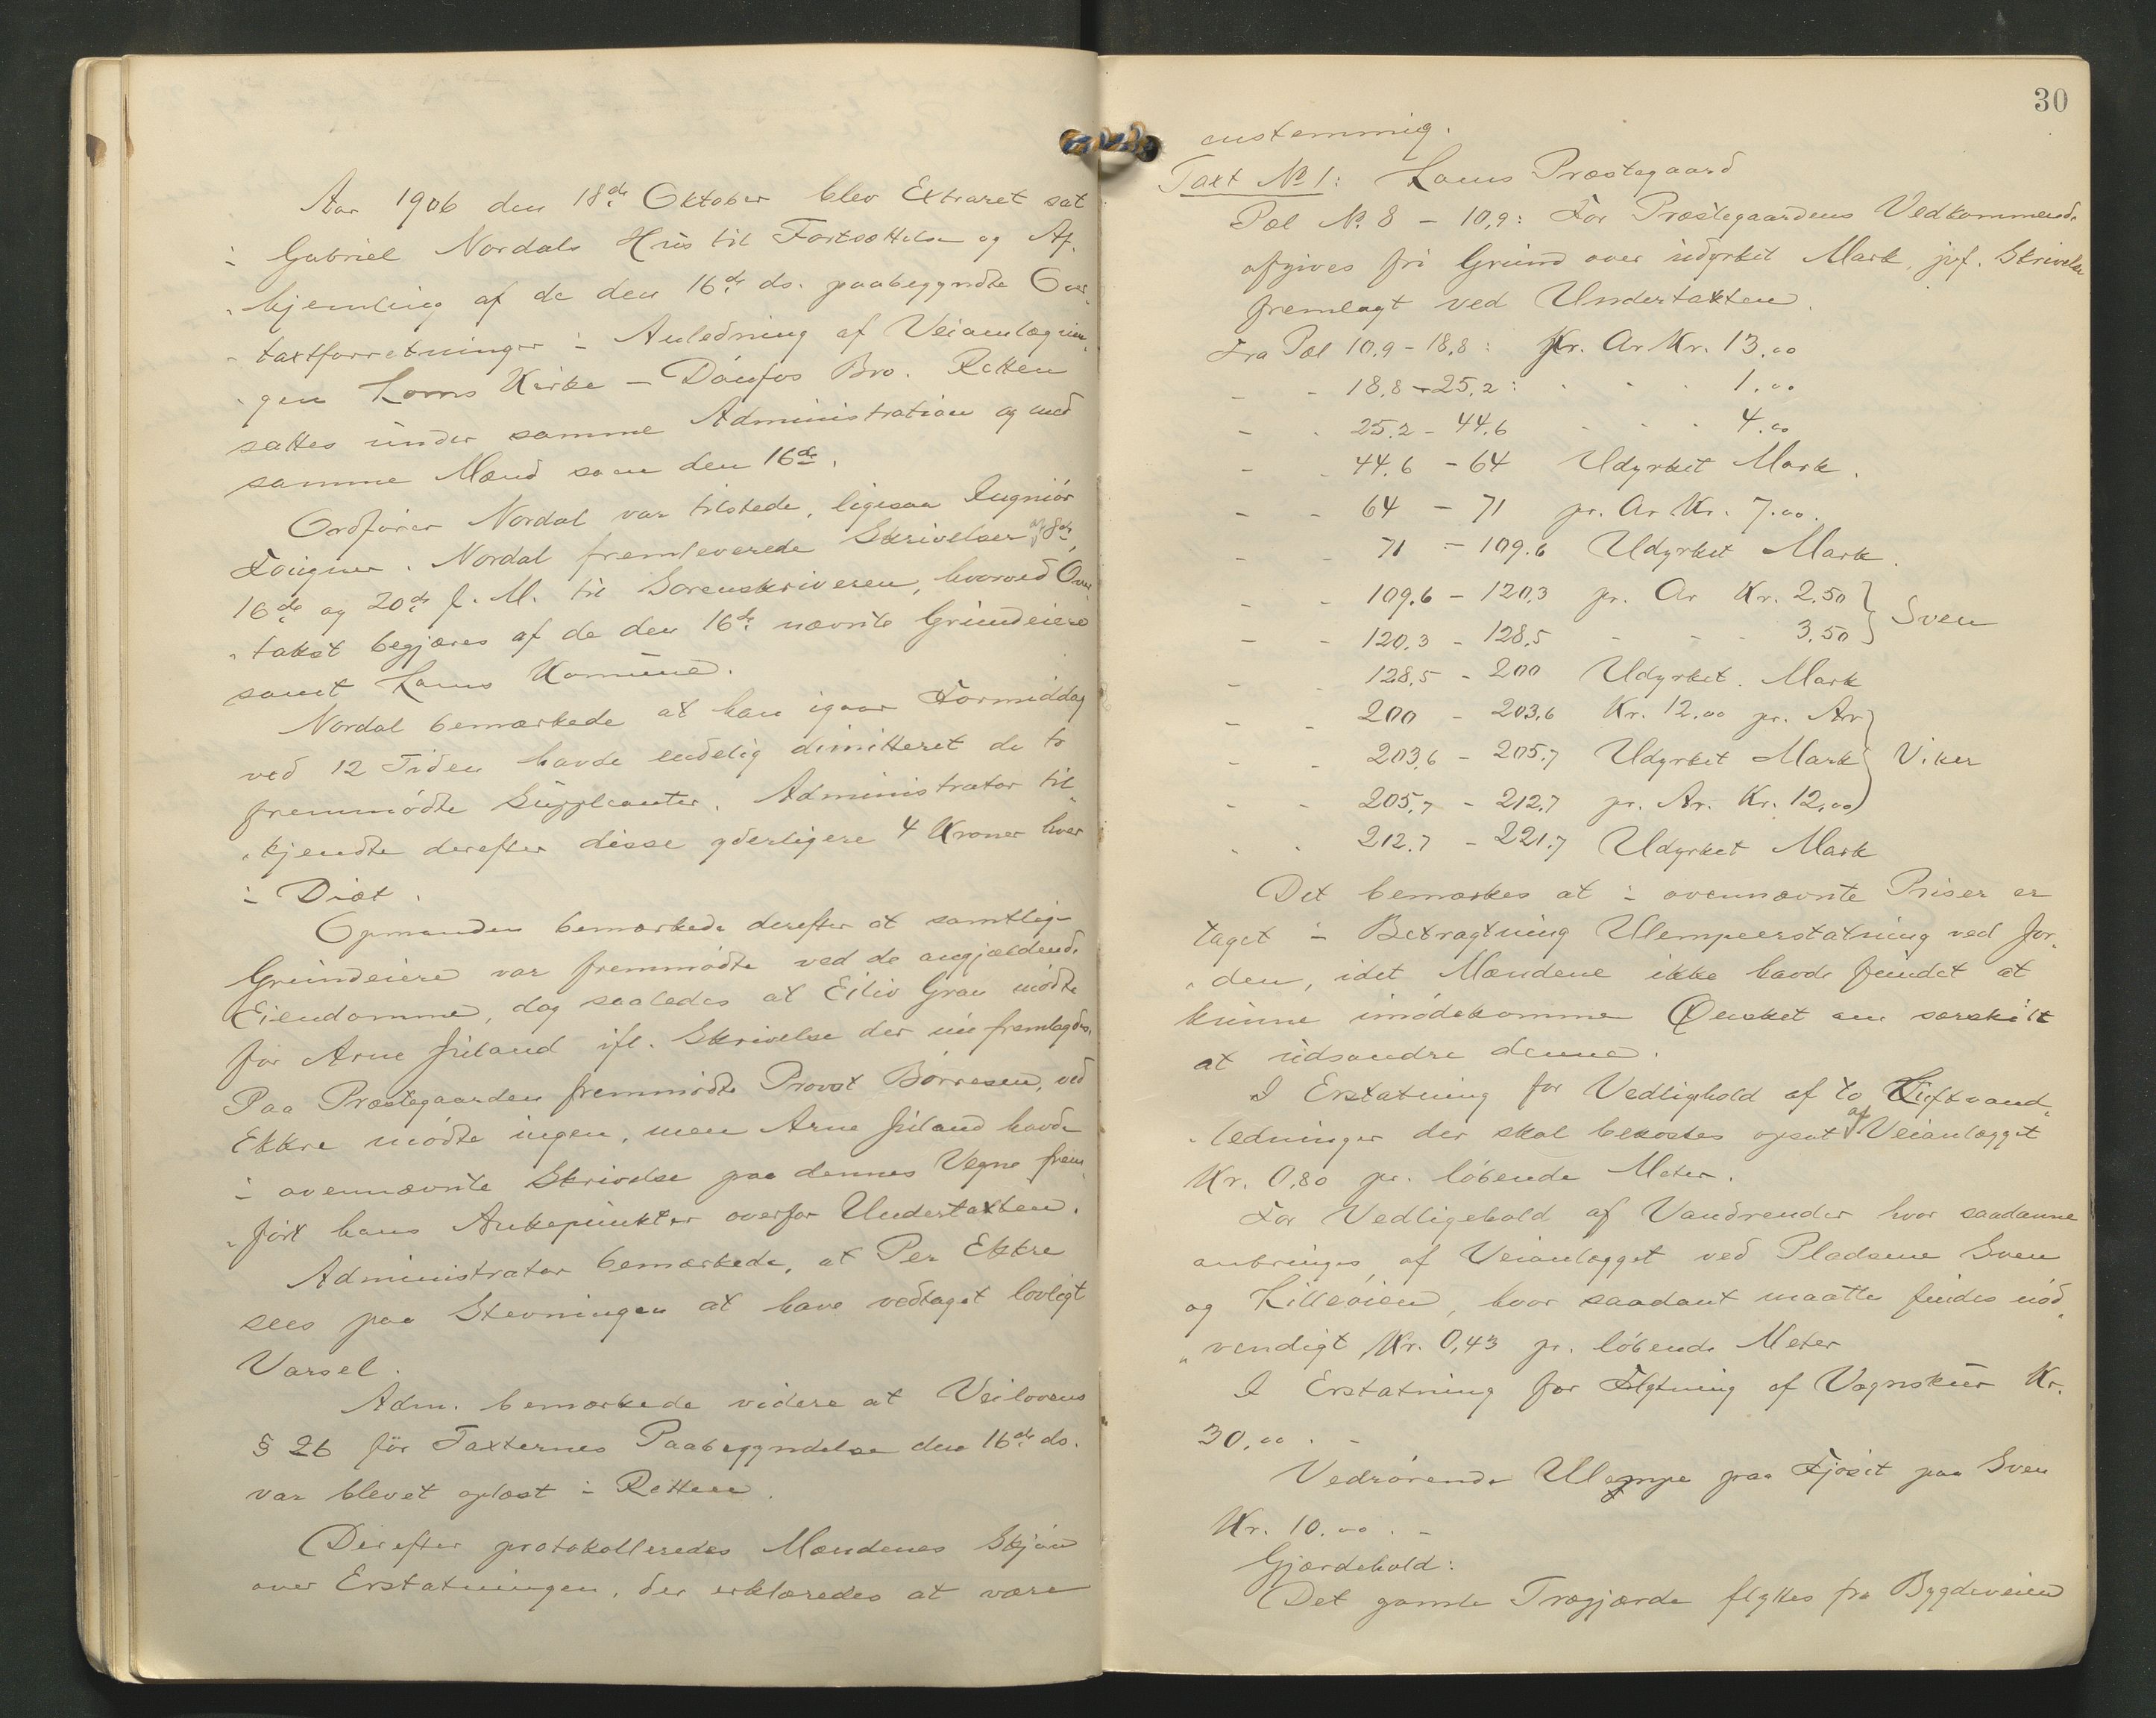 Aar 1906 den 18de Oktober blev Extraret sat
i Gabriel Nordals Hus til Fortsættelse og Af-
"hjemling af de den 16de ds. paabegyndte Over-
"taxtforretninger i Anledning af Veianlægnin-
"gen Loms Kirke – Donfos Bro. Retten
sattes under samme Administration og med
samme Mænd som den 16de.
Ordfører Nordal var tilstede, ligesaa Ingniör
Fougner. Nordal fremleverede Skrivelser af 8de,
16de og 20de f. M. til Sorenskriveren, hvorved Over-
"takst begjæres af de den 16de nævnte Grundeiere
samt Loms Komune.
Nordal bemærkede at han igaar Formiddag
ved 12 Tiden havde endelig dimitteret de to
fremmödte Suppleanter. Administrator til-
"kjendte derefter disse yderligere 4 Kroner hver
i Diæt.
Opmanden bemærkede derefter at samtlige
Grundeiere var fremmödte ved de angjældende
Eiendomme, dog saaledes at Eiliv Grau mödte
for Arne Juland ifl. Skrivelse der nu fremlagdes.
Paa Præstegaarden fremmödte Provst Börresen, ved
Ekkre mödte ingen, men Arne Juland havde
i ovennævnte Skrivelse paa dennes Vegne frem-
"fört hans Ankepunkter overfor Undertaxten.
Administrator bemærkede, at Per Ekkre
sees paa Stevningen at have vedtaget lovligt
Varsel.
Adm. bemærkede videre at Veilovens
§ 26 för Taxternes Paabegyndelse den 16de ds.
var blevet oplæst i Retten.
Derefter protokolleredes Mændenes Skjön
over Erstatningen, der erklæredes at være
30
enstemmig.
Taxt No 1: Loms Præstegaard
Pæl No. 8 – 10,9: For Præstegaardens Vedkommende
afgives fri Grund over udyrket Mark, jvf. Skrivelse
fremlagt ved Undertakten.
Fra Pæl 10.9 – 18.8: pr. Ar Kr. 13.00
- - 18.8 – 25.2: - - - 1.00
- - 25.2 – 44.6 - - - 4.00
- - 44.6 – 64 Udyrket Mark.
- - 64 – 71 pr. Ar Kr. 7.00.
- - 71 – 109.6 Udyrket Mark.
- - 109.6 – 120.3 pr. Ar Kr. 2.50 } Sven
- - 120.3 – 128.5 - - - 3.50 }
- - 128.5 – 200 Udyrket. Mark
- - 200 – 203.6 Kr. 12.00 pr. Ar }
- - 203.6 – 205.7 Udyrket Mark } Viken
- - 205.7 – 212.7 pr. Ar. Kr. 12.00 }
- - 212.7 – 221.7 Udyrket Mark
Det bemærkes at i ovennævnte Priser er
taget i Betragtning Ulempeerstatning ved Jor-
"den, idet Mændene ikke havde fundet at
kunne imödekomme Önsket om særskilt
at udsondre denne.
I Erstatning for Vedlighold af to Luftvand-
"ledninger der skal bekostes opsat af Veianlægget
Kr. 0.80 pr. löbende Meter.
For Vedligehold af Vandrender hvor saadanne
anbringes af Veianlægget ved Pladsene Sven
og Lilleöien, hvor saadant maatte findes nöd-
"vendigt, Kr. 0,43 pr. löbende Meter
I Erstatning for Flytning af Vognskur Kr.
30.00. –
Vedrörende Ulempe paa Fjöset paa Sven
Kr. 10.00. –
Gjærdehold:
Det gamle Trægjærde flyttes fra Bygdeveien